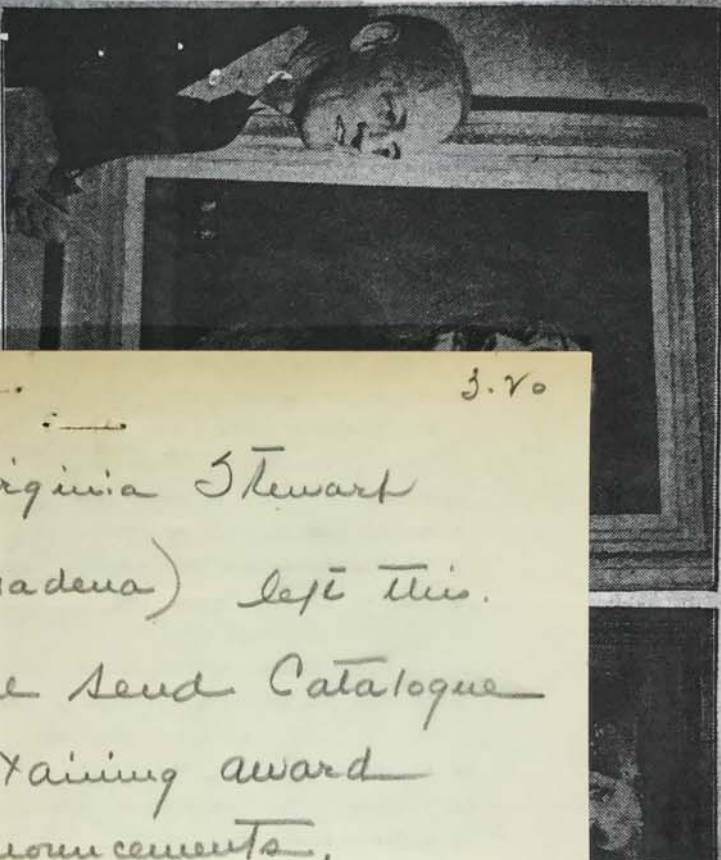 3.20
rginia Stewart
adena) left this.
e send Catalogue
taining award
nouncements.